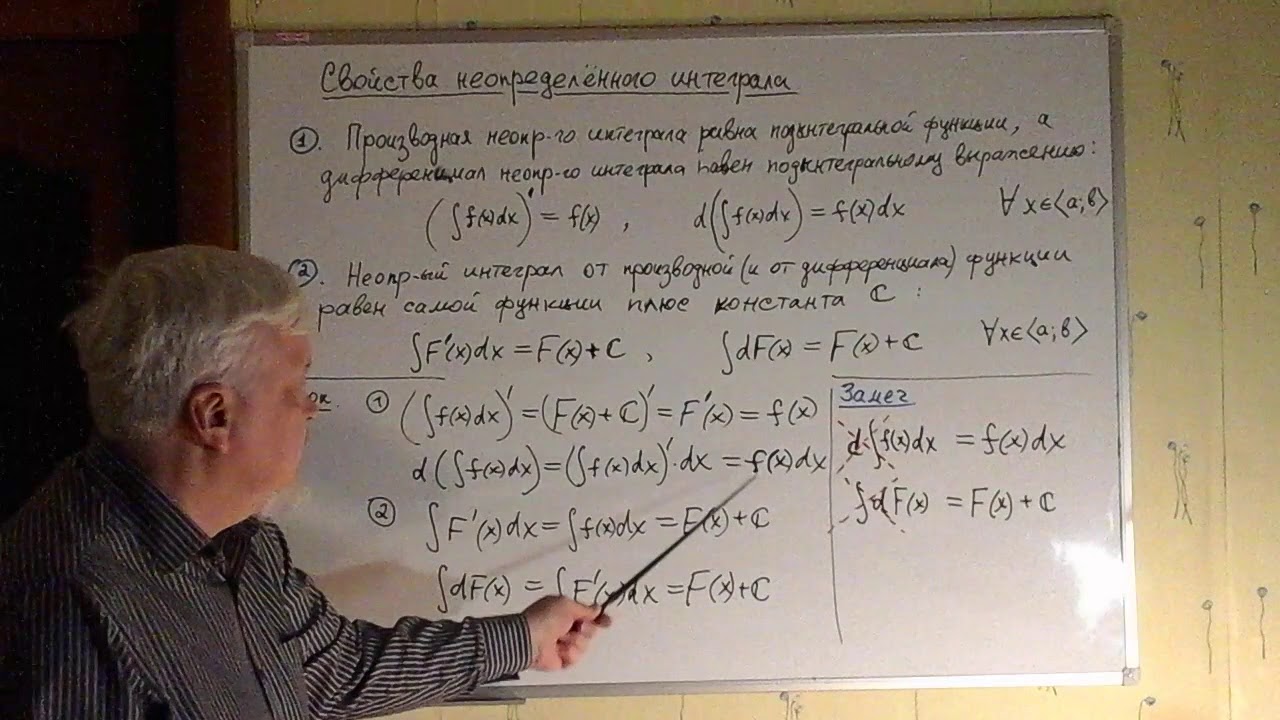 Свойства неопределённого интеграла
①. Производная неопр-го интеграла равна подынтегральной функции, а
дифференциал неопр-го интеграла равен подынтегральному выражению:
(∫f(x)dx)' = f(x) , d(∫f(x)dx) = f(x)dx ∀ x∈⟨a;b⟩
②. Неопр-ый интеграл от производной (и от дифференциала) функции
равен самой функции плюс константа C :
∫F'(x)dx = F(x)+C , ∫dF(x) = F(x)+C ∀x∈⟨a;b⟩
① (∫f(x)dx)' = (F(x)+C)' = F'(x) = f(x)
d(∫f(x)dx) = (∫f(x)dx)'·dx = f(x)dx
② ∫F'(x)dx = ∫f(x)dx = F(x)+C
∫dF(x) = ∫F'(x)dx = F(x)+C
Замеч
d∫f(x)dx = f(x)dx
∫dF(x) = F(x)+C